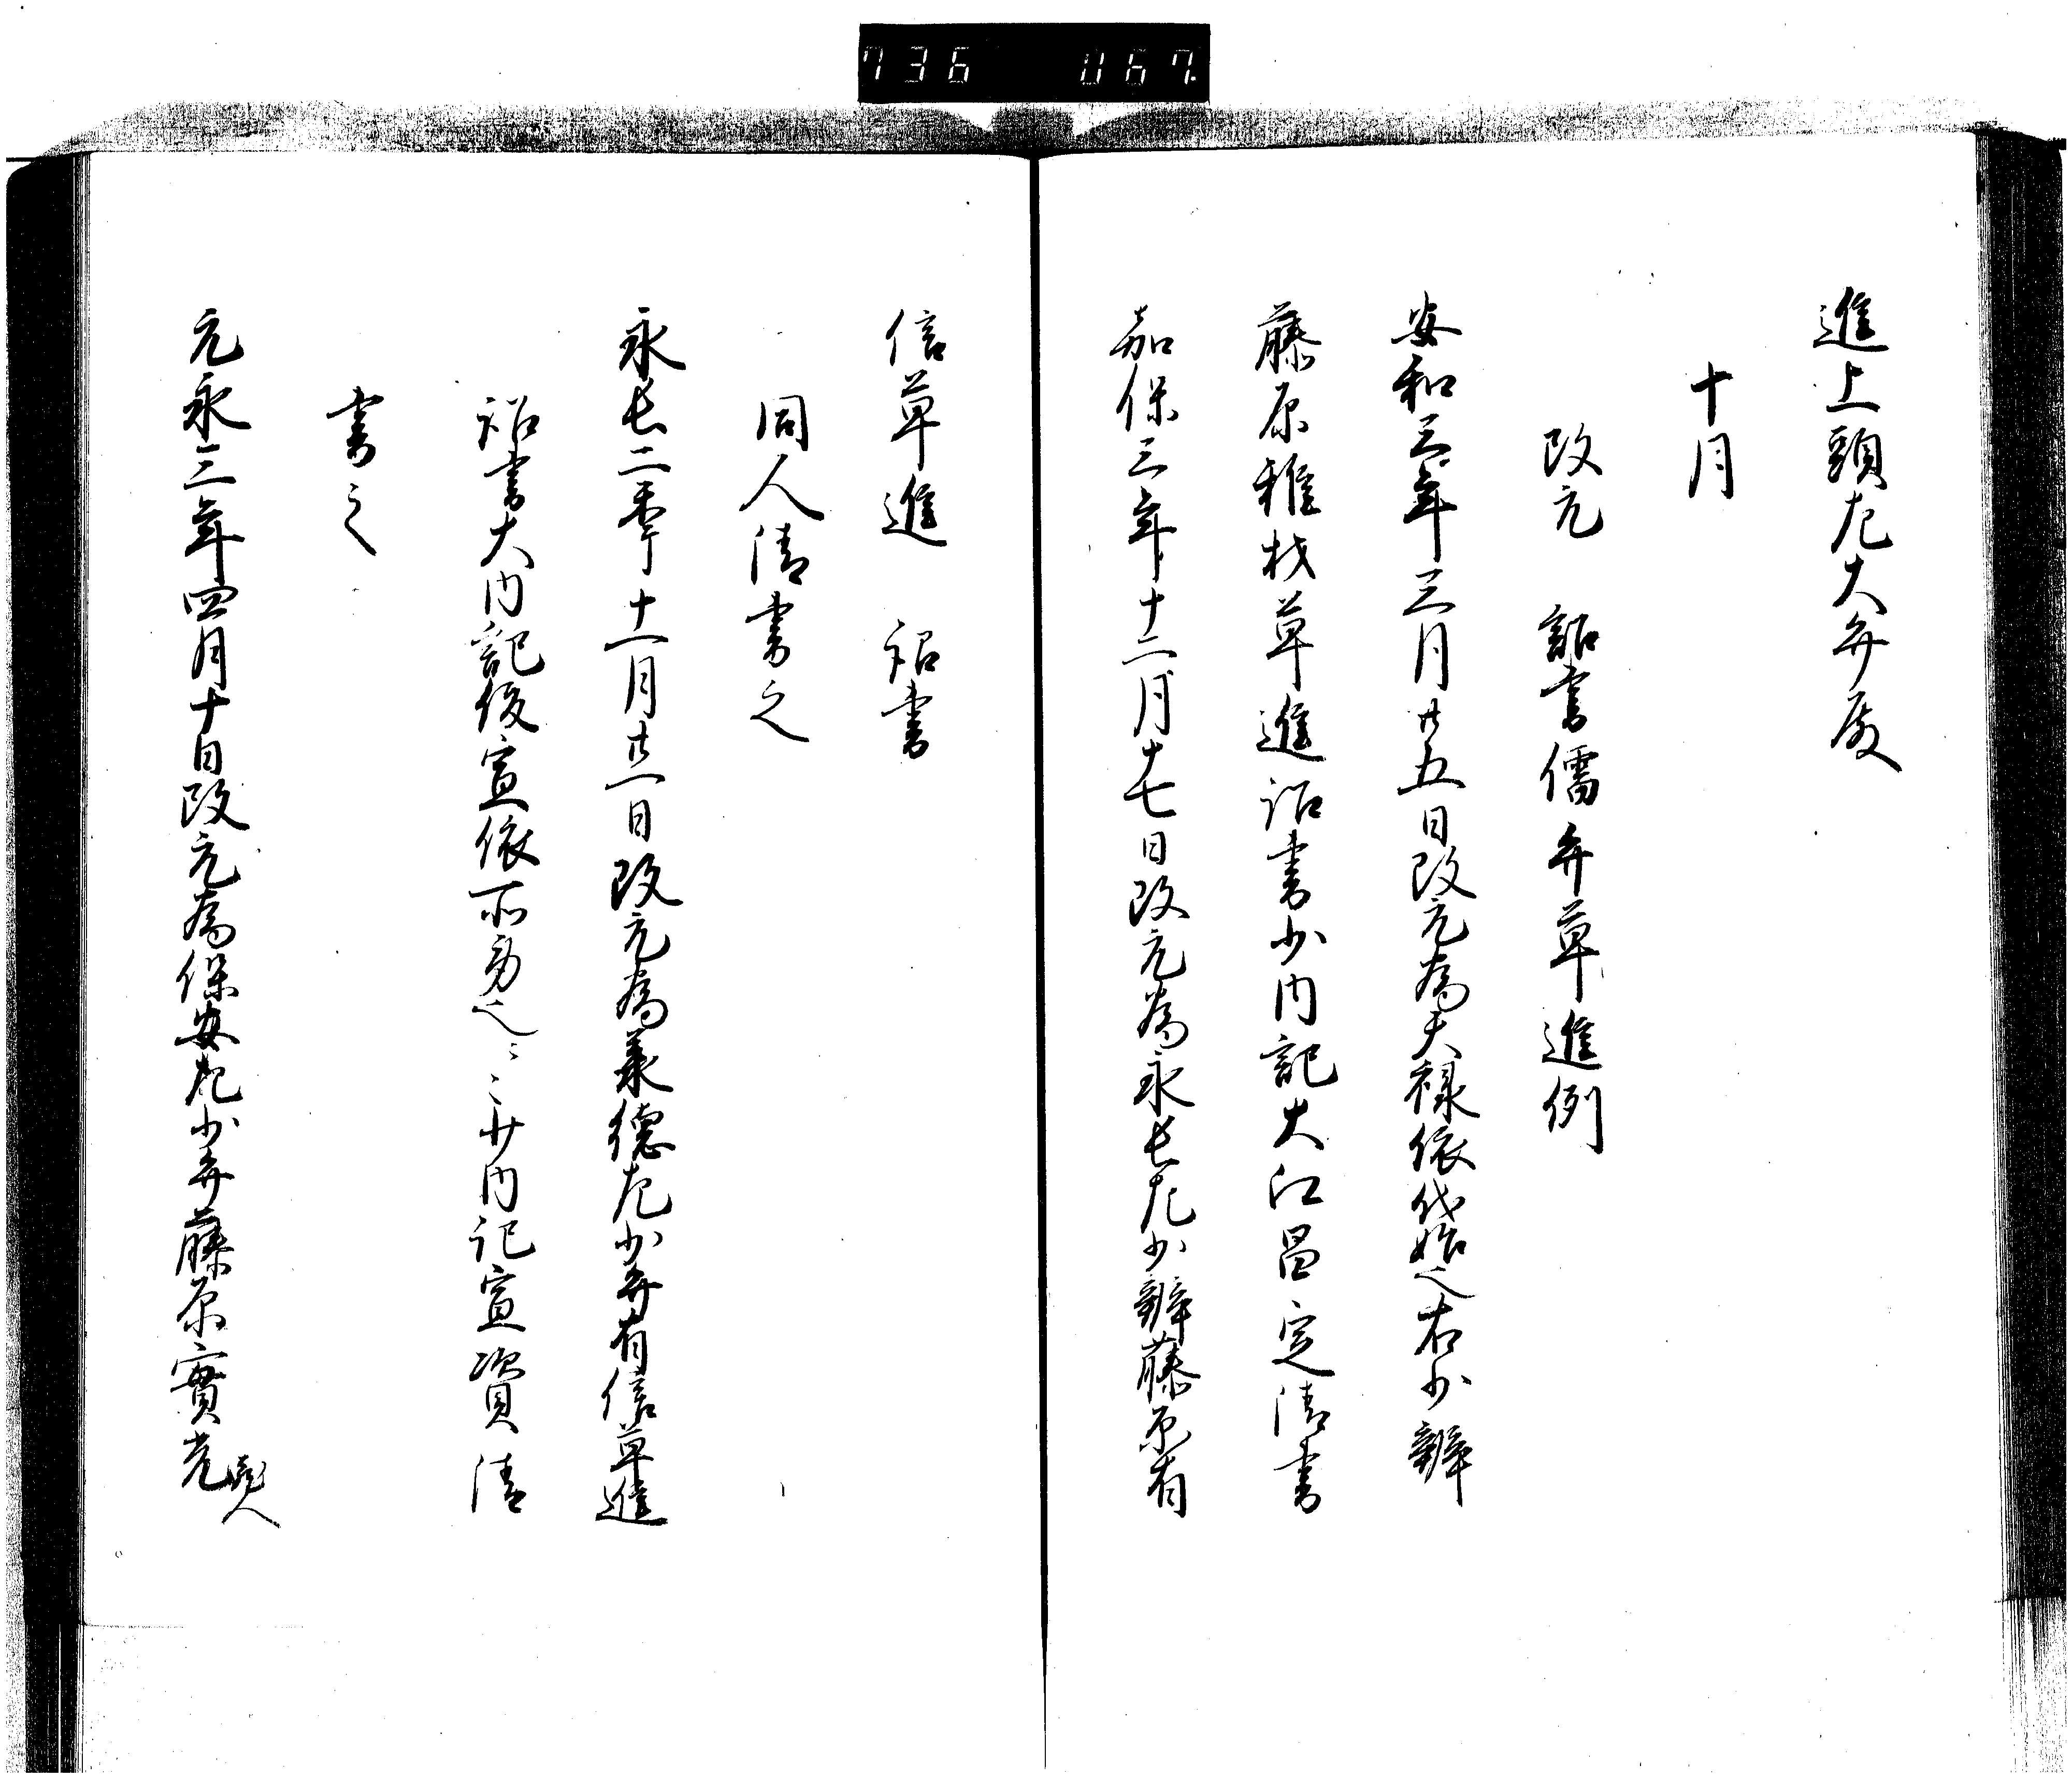 736 067
進上頭左大弁殿
十月
改元 詔書儒弁草進例
安和三年三月廿五日改元為天禄依代始之右少辨
藤原雅材草進詔書少内記大江昌定清書
嘉保三年十二月十七日改元為永長左少辨藤原有
信草進 詔書
同人清書之
永長二年十一月廿一日改元為承徳左少弁有信草進
詔書大内記俊宣依所労也少内記宣資清
書之
元永三年四月十日改元為保安左少弁藤原實光